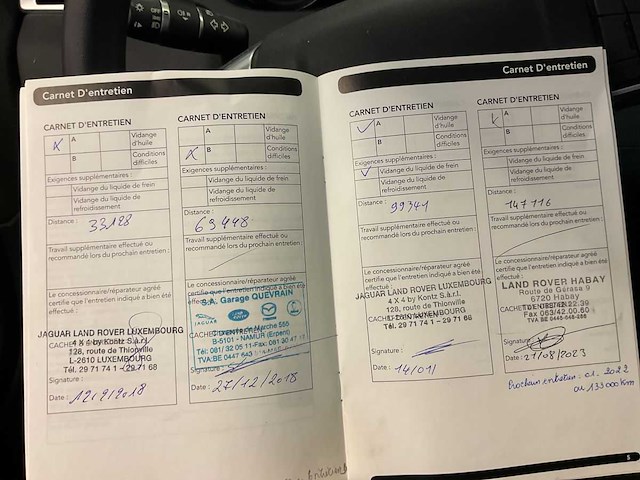 Carnet D'entretien
CARNET D'ENTRETIEN
X A Vidange d'huile
B Conditions difficiles
Exigences supplémentaires :
Vidange du liquide de frein
Vidange du liquide de refroidissement
Distance :
33128
Travail supplémentaire effectué ou recommandé lors du prochain entretien :
Le concessionnaire/réparateur agréé certifie que l'entretien indiqué a bien été effectué :
JAGUAR LAND ROVER LUXEMBOURG
4 X 4 by Kontz S.à r.l.
128, route de Thionville
L-2610 LUXEMBOURG
Tél. 29 71 74 1 - 29 71 68
Signature :
Date : 12/9/2018
CARNET D'ENTRETIEN
A Vidange d'huile
X B Conditions difficiles
Exigences supplémentaires :
Vidange du liquide de frein
Vidange du liquide de refroidissement
Distance :
63448
Travail supplémentaire effectué ou recommandé lors du prochain entretien :
Le concessionnaire/réparateur agréé certifie que l'entretien indiqué a bien été effectué :
S.A. Garage QUEVRAIN
JAGUAR
LAND ROVER
mazda
Chaussée de Marche 585
B-5101 - NAMUR (Erpent)
Tél: 081/ 32 05 11-Fax: 081 30 47 17
TVA:BE 0447 643
Signature :
Date : 27/12/2018
Carnet D'entretien
CARNET D'ENTRETIEN
✓ A Vidange d'huile
B Conditions difficiles
Exigences supplémentaires :
✓ Vidange du liquide de frein
Vidange du liquide de refroidissement
Distance :
99341
Travail supplémentaire effectué ou recommandé lors du prochain entretien :
Le concessionnaire/réparateur agréé certifie que l'entretien indiqué a bien été effectué :
JAGUAR LAND ROVER LUXEMBOURG
4 X 4 by Kontz S.à r.l.
128, route de Thionville
L-2610 LUXEMBOURG
Tél. 29 71 74 1 - 29 71 68
Signature :
Date : 14/01/
CARNET D'ENTRETIEN
A Vidange d'huile
B Conditions difficiles
Exigences supplémentaires :
Vidange du liquide de frein
Vidange du liquide de refroidissement
Distance :
147 116
Travail supplémentaire effectué ou recommandé lors du prochain entretien :
Le concessionnaire/réparateur agréé certifie que l'entretien indiqué a bien été effectué :
LAND ROVER HABAY
Route de Gérasa
6720 Habay
Fax 063/42.00.60
Signature :
Date : 21/08/2023
Prochain entretien : 01.2022
ou 133 000 km
5